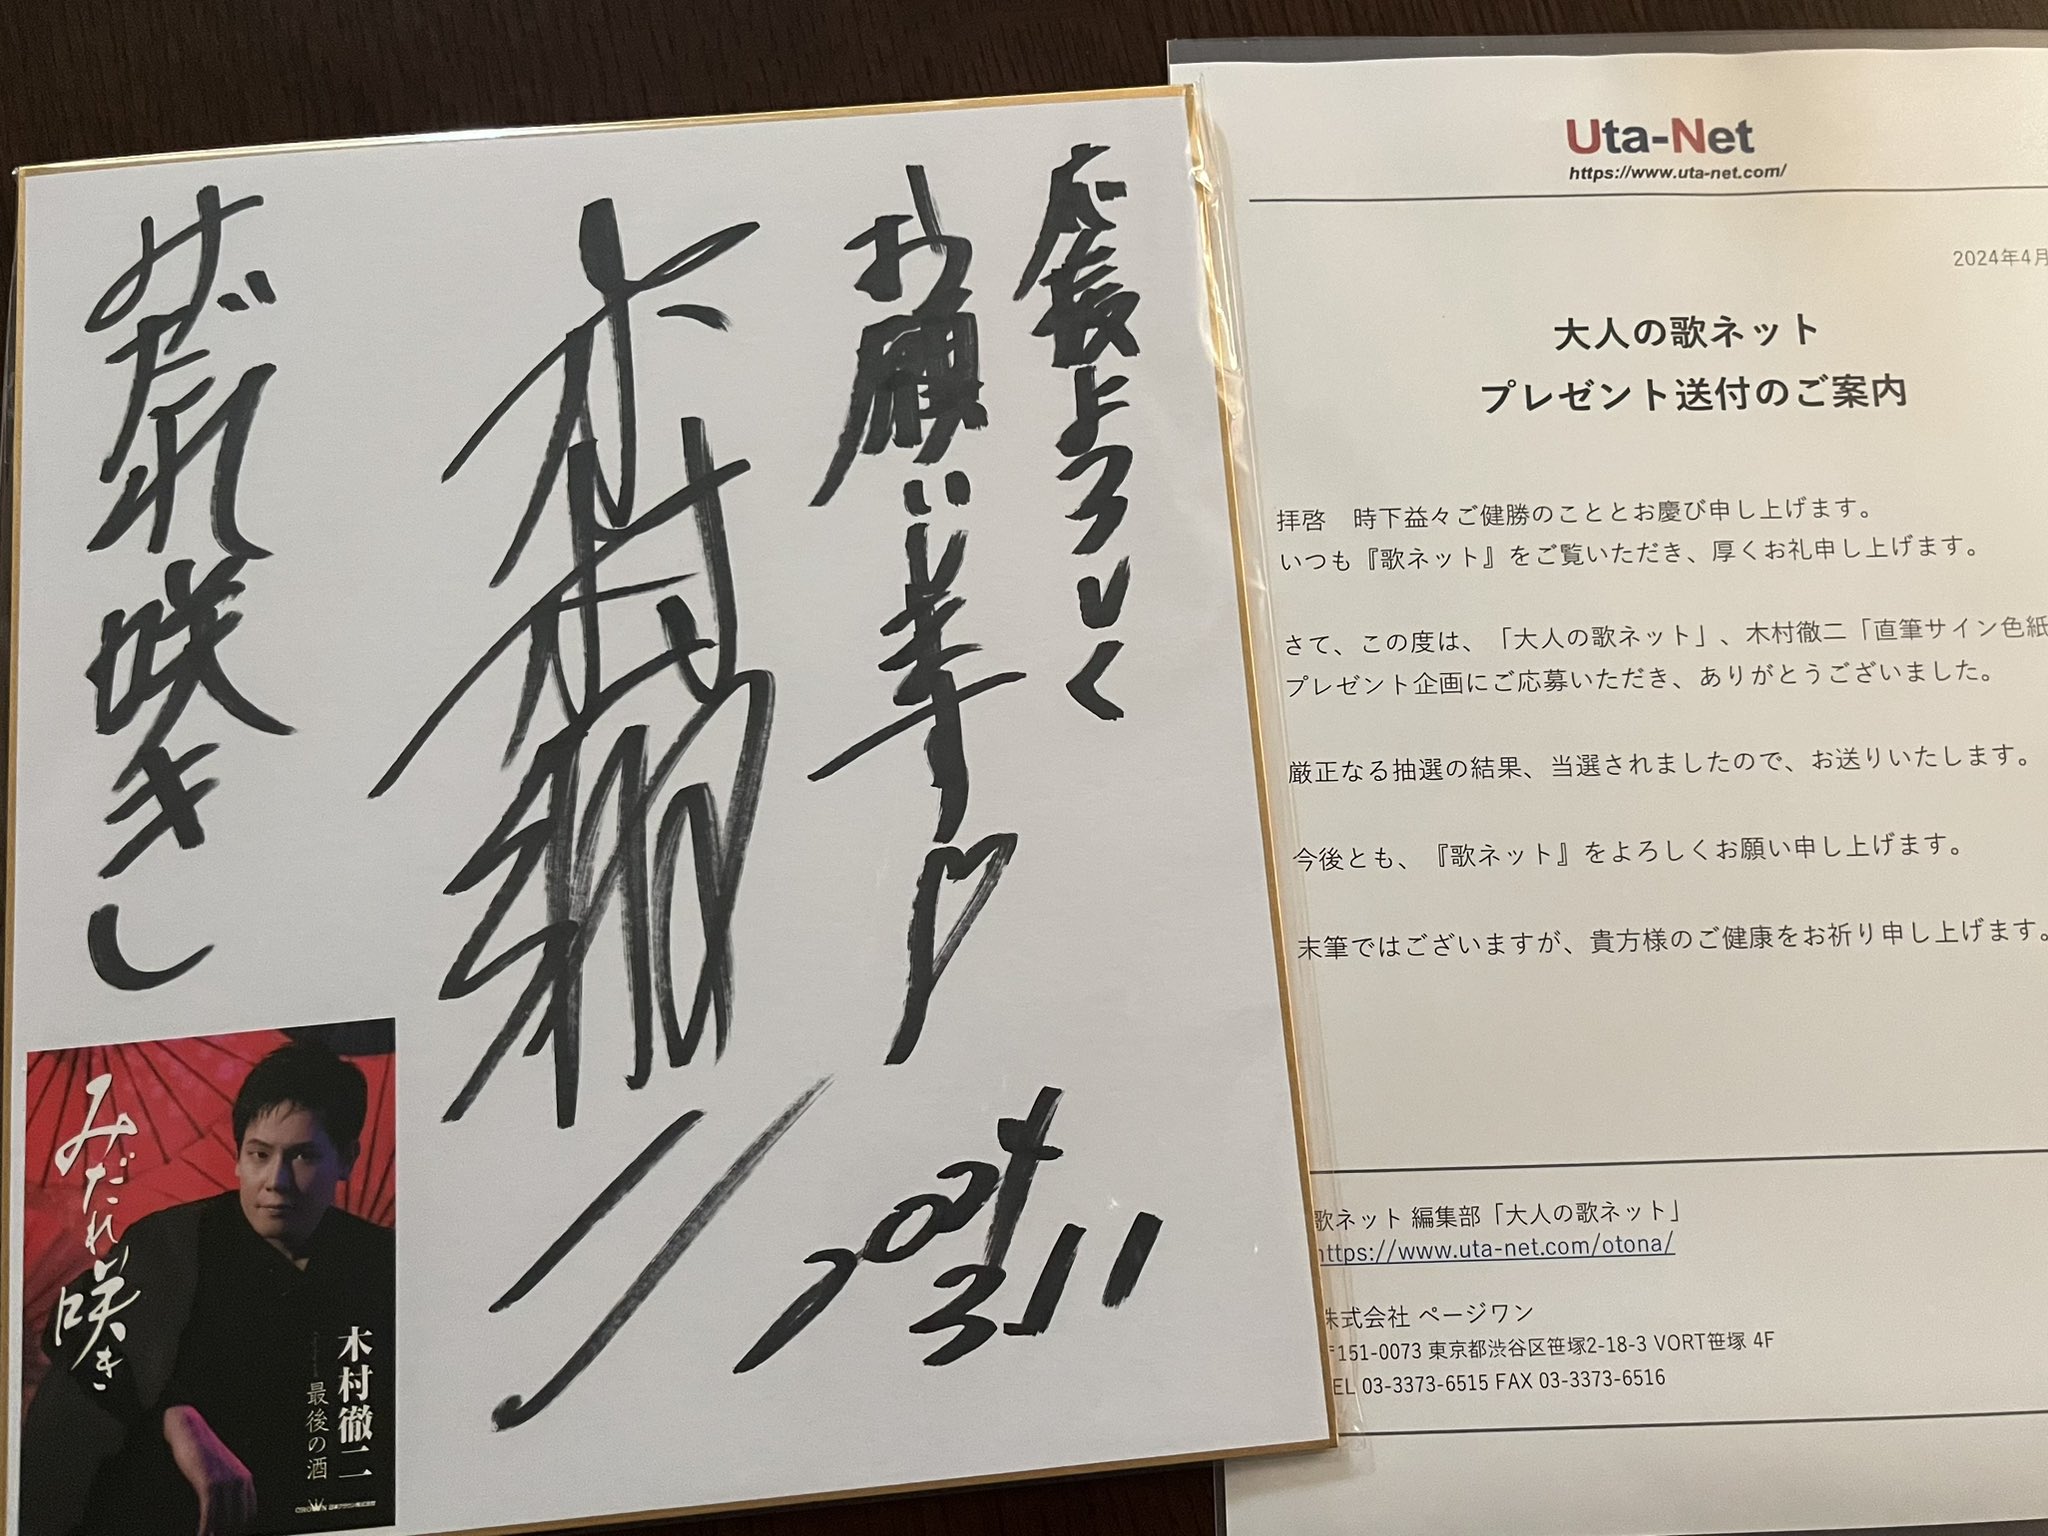 応援よろしく
お願いします
木村徹二
2024
3/11
みだれ咲き
みだれ咲き
木村徹二
最後の酒
CROWN 日本クラウン株式会社
Uta-Net
https://www.uta-net.com/
2024年4月
大人の歌ネット
プレゼント送付のご案内
拝啓　時下益々ご健勝のこととお慶び申し上げます。
いつも『歌ネット』をご覧いただき、厚くお礼申し上げます。
さて、この度は、「大人の歌ネット」、木村徹二「直筆サイン色紙
プレゼント企画にご応募いただき、ありがとうございました。
厳正なる抽選の結果、当選されましたので、お送りいたします。
今後とも、『歌ネット』をよろしくお願い申し上げます。
末筆ではございますが、貴方様のご健康をお祈り申し上げます。
歌ネット 編集部「大人の歌ネット」
https://www.uta-net.com/otona/
株式会社 ページワン
〒151-0073 東京都渋谷区笹塚2-18-3 VORT笹塚 4F
TEL 03-3373-6515 FAX 03-3373-6516